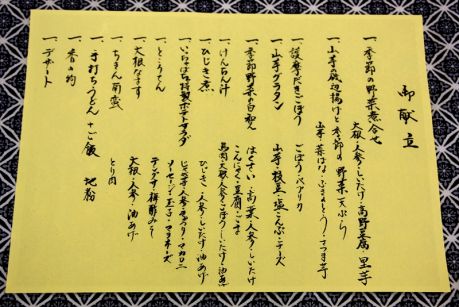 御献立
一、季節の野菜煮合せ
大根・人参・しいたけ・高野豆腐・里芋
一、山芋の磯辺揚げと季節の野菜天ぷら
山芋・菜はな・ふきのとう・さつま芋
一、護摩だきごぼう
ごぼう・パプリカ
一、山芋グラタン
山芋・枝豆・塩こんぶ・チーズ
一、季節野菜の白和え
はくさい・高菜・人参・しいたけ
こんにゃく・豆腐・ごま
一、けんちん汁
鳥肉・大根・人参・ごぼう・しいたけ・油あげ
一、ひじき煮
ひじき・人参・しいたけ・油あげ
一、いなばち特製ポテトサラダ
じゃが芋・人参・キュウリ・マカロニ
ソーセージ・玉子・マヨネーズ
一、ところてん
テングサ・梅酢みそ
一、大根なます
大根・人参・油あげ
一、ちきん南蛮
とり肉
一、手打ちうどん+ご飯
地粉
一、香の物
一、デザート